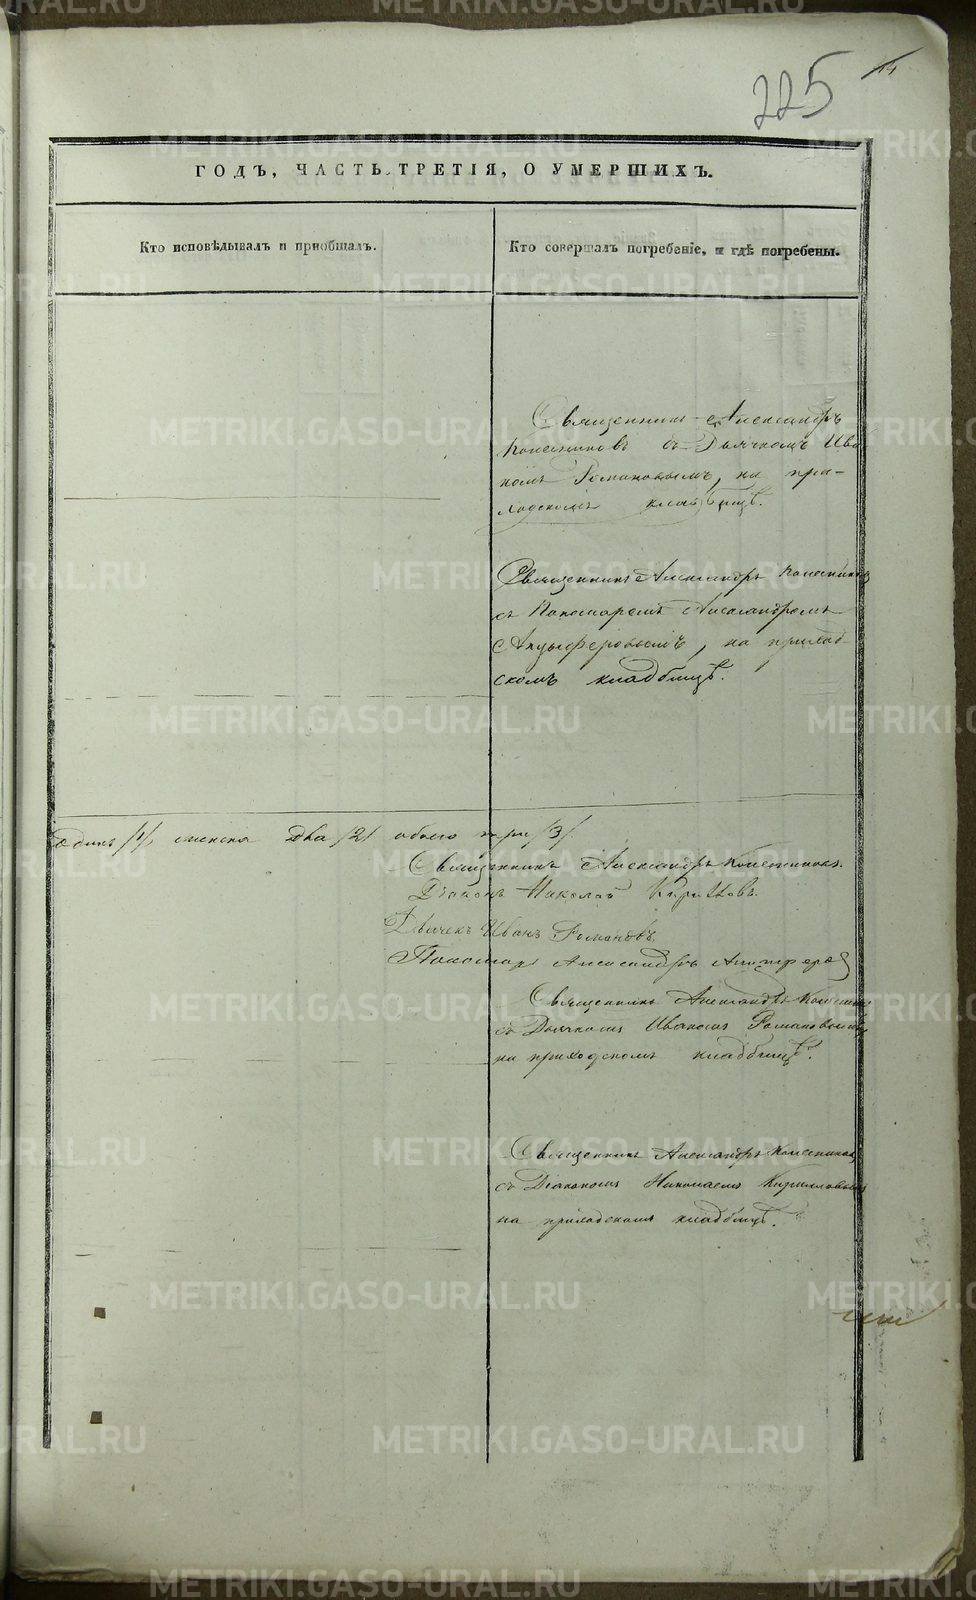 225
14
ГОДЪ, ЧАСТЬ ТРЕТІЯ, О УМЕРШИХЪ.
Кто исповѣдывалъ и пріобщалъ.
Кто совершалъ погребеніе, и гдѣ погребены.
Священникъ Александръ
Колесниковъ съ Дьячкомъ Ива
номъ Романовымъ, на при-
ходскомъ кладбищѣ.
Священникъ Александръ Колесниковъ
съ Пономаремъ Александромъ
Анцыферовымъ, на приход-
скомъ кладбищѣ.
одинъ /1/, женска два /2/ обоего три /3/.
Священникъ Александръ Колесниковъ.
Діаконъ Николай Кириловъ.
Дьячекъ Иванъ Романовъ.
Пономарь Александръ Анцыферовъ
Священникъ Александръ Колесников
съ Дьячкомъ Иваномъ Романовымъ
на приходскомъ кладбищѣ.
Священникъ Александръ Колесников
съ Діакономъ Николаемъ Кирилловымъ
на приходскомъ кладбищѣ.
METRIKI.GASO-URAL.RU